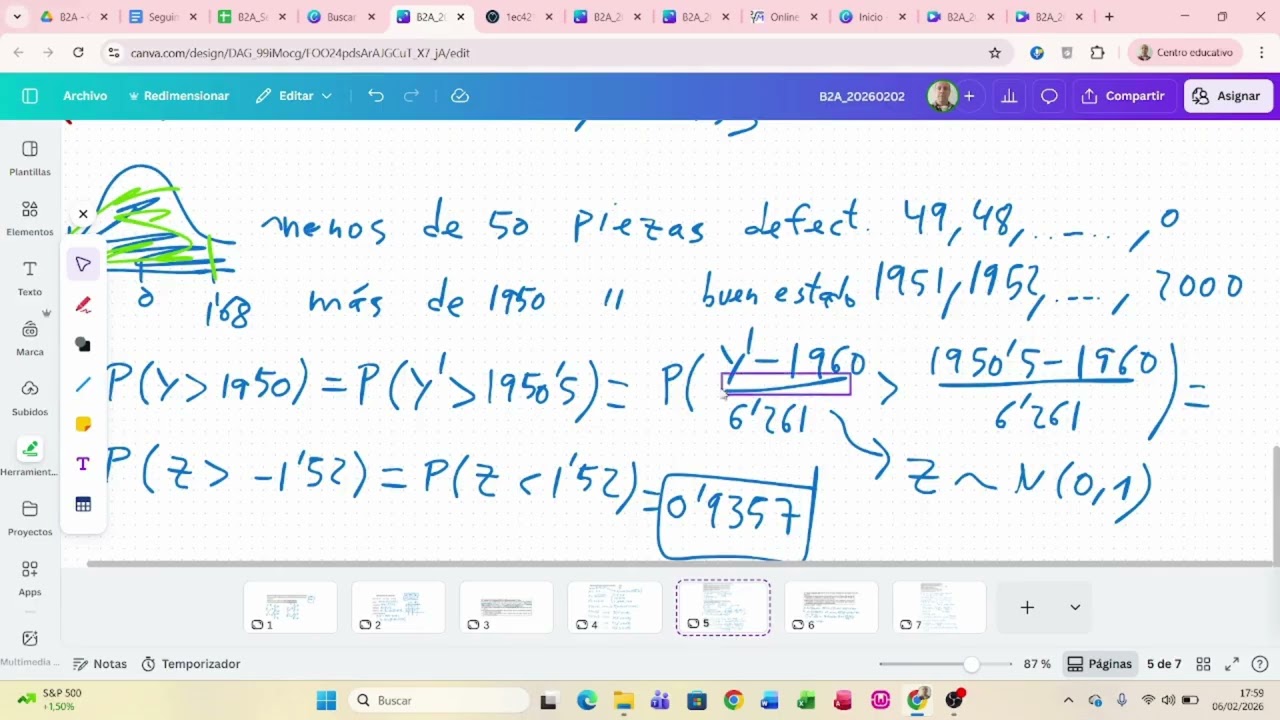 B2A - C
Seguin
B2A_Se
Buscar
B2A_2(
1ec42
B2A_2(
B2A_2(
Online
Inicio -
B2A_2(
B2A_2(
canva.com/design/DAG_99iMocg/FOO24pdsArAJGCuT_X7_jA/edit
Centro educativo
Archivo
Redimensionar
Editar
B2A_20260202
Compartir
Asignar
Plantillas
Elementos
Texto
Marca
Subidos
Herramient...
Proyectos
Apps
Multimedia ...
menos de 50 piezas defect. 49, 48, ..-.., 0
0 1'68 más de 1950 " buen estado 1951, 1952, ...., 2000
P(Y > 1950) = P(Y' > 1950'5) = P( Y' - 1960 / 6'261 > 1950'5 - 1960 / 6'261 ) =
P(Z > -1'52) = P(Z < 1'52) = 0'9357
Z ~ N(0,1)
1
2
3
4
5
6
7
Notas
Temporizador
87 %
Páginas
5 de 7
S&P 500
+1,50%
Buscar
17:59
06/02/2026